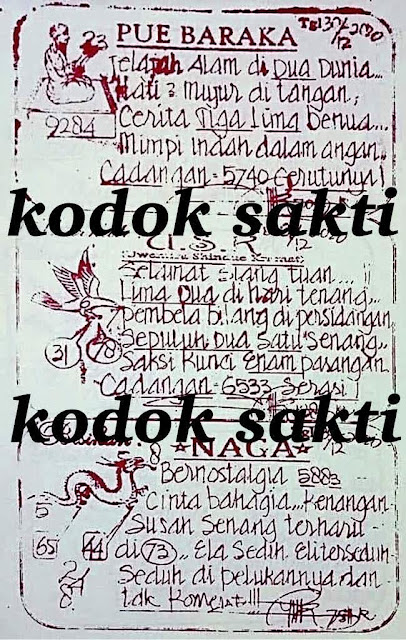 PUE BARAKA
13/12 2020
23
Jelajah Alam di Dua Dunia...
Hati 2 Mujur di tangan,
Cerita Tiga Lima Benua...
9284
Mimpi Indah dalam angan..
Cadangan = 5740 Cerutunya!
kodok sakti
U.S.R
12
Selamat Siang tuan...!!
Lima Dua di hari tenang..
Pembela bilang di persidangan
Sepuluh Dua Satu Senang..
31 78
Saksi Kunci Enam pasangan
Cadangan = 6533 Serasi
kodok sakti
12
NAGA
8
Bernostalgia 5883
Cinta bahagia... Kenangan
5
Susan Senang terharu
65 44 di 73.. Ela Sedih Eliterseduh
2
8
Seduh di pelukannya dan
tdk Komerat!!!